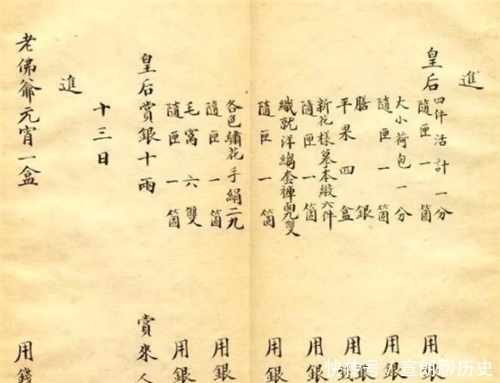 進
皇后
四件活計一分
隨匣一箇 用銀
大小荷包一分
隨匣一箇 用銀
平果四盒 用銀
新花樣摹本緞六件
隨匣一箇 用銀
織就洋縐套褲四雙
隨匣一箇 用銀
各色繡花手絹二九
隨匣一箇 用銀
毛窩六雙
隨匣一箇 用銀
皇后賞銀十兩 賞來人
十三日
進
老佛爺元宵一盒 用錢
快传号 / 宣朗聊历史